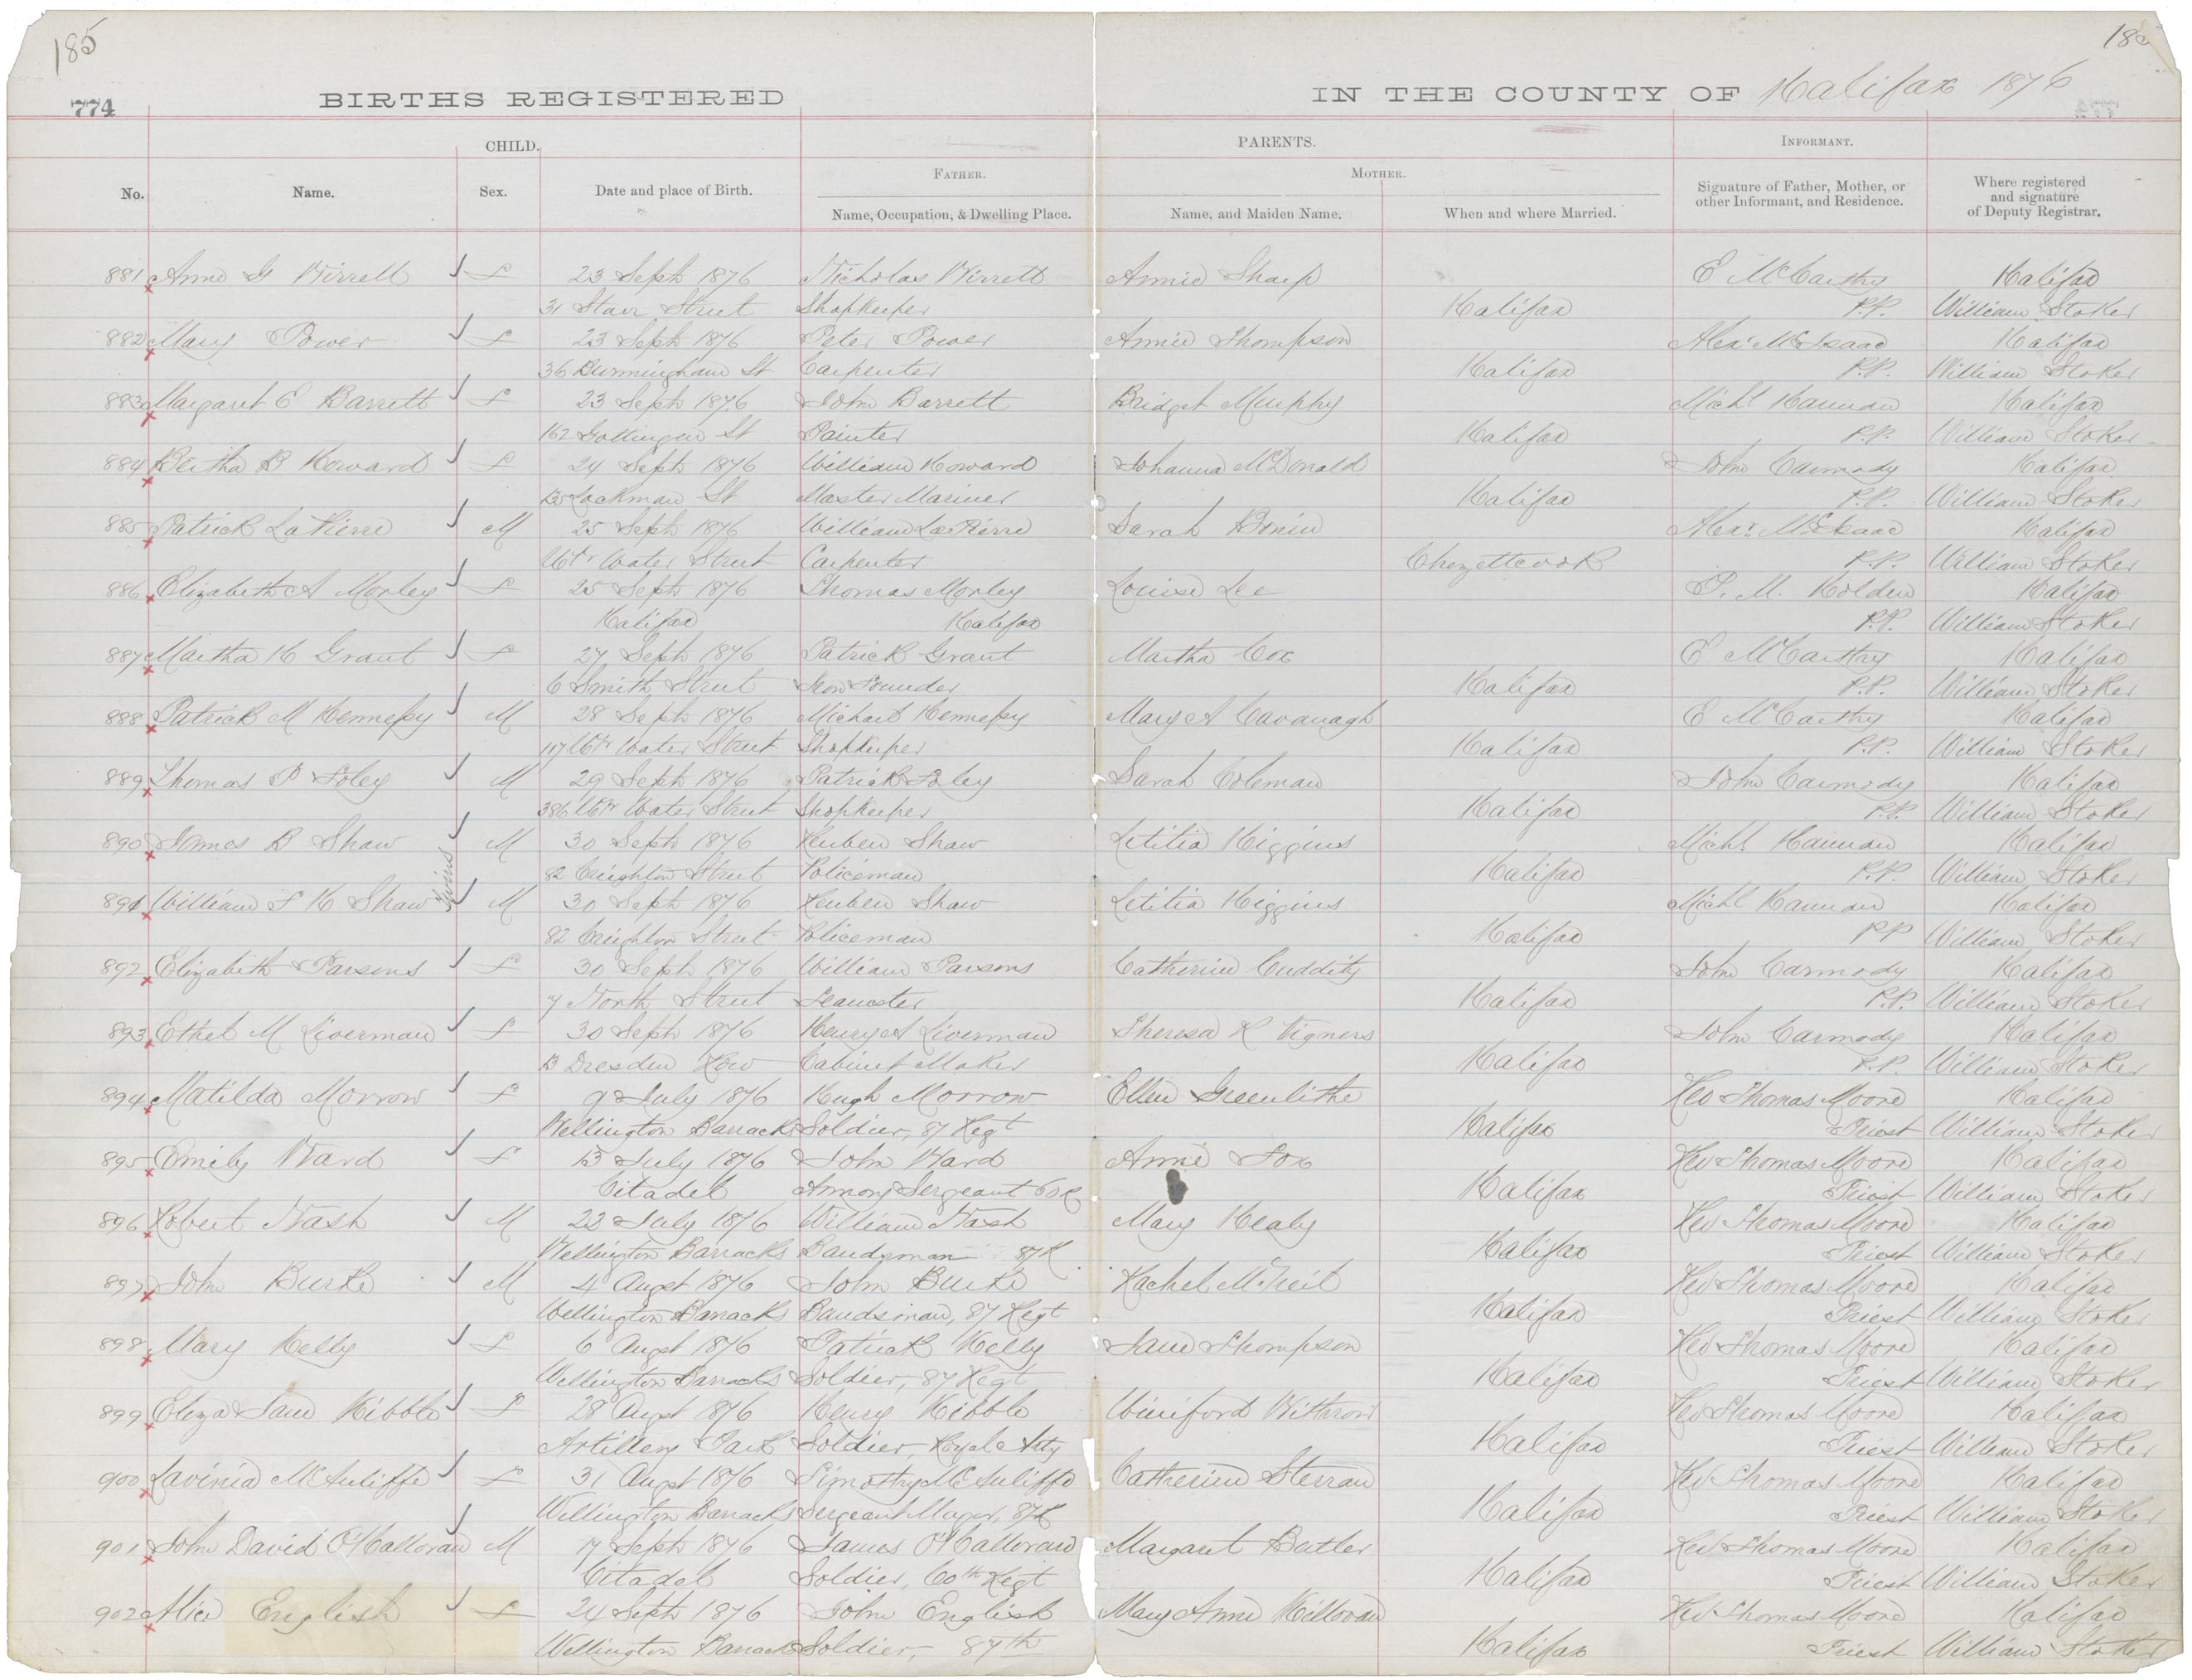 185
185
774
BIRTHS REGISTERED IN THE COUNTY OF Halifax 1876
CHILD. PARENTS. INFORMANT.
FATHER. MOTHER.
No. Name. Sex. Date and place of Birth. Name, Occupation, & Dwelling Place. Name, and Maiden Name. When and where Married. Signature of Father, Mother, or other Informant, and Residence. Where registered and signature of Deputy Registrar.
881 Anne G Wirrell f 23 Sept 1876 Nicholas Wirrell Annie Sharp E McCarthy Halifax
31 Starr Street Shopkeeper Halifax P.P. William Stoker
882 Mary Power f 23 Sept 1876 Peter Power Annie Thompson Alexr McIsaac Halifax
36 Burmingham St Carpenter Halifax P.P. William Stoker
883 Margaret E Barrett f 23 Sept 1876 John Barrett Bridget Murphy Michl Hannan Halifax
162 Gottingen St Painter Halifax P.P. William Stoker
884 Bertha B Howard f 24 Sept 1876 William Howard Johanna McDonald John Carmody Halifax
135 Lockman St Master Mariner Halifax P.P. William Stoker
885 Patrick LaPierre M 25 Sept 1876 William LaPierre Sarah Bonin Alexr McIsaac Halifax
Upr Water Street Carpenter Chezettcook P.P. William Stoker
886 Elizabeth A Morley f 25 Sept 1876 Thomas Morley Louisa Lee P. M. Holden Halifax
Halifax Halifax P.P. William Stoker
887 Martha H Grant f 27 Sept 1876 Patrick Grant Martha Cox E McCarthy Halifax
6 Smith Street Iron Founder Halifax P.P. William Stoker
888 Patrick M Hennessy M 28 Sept 1876 Michael Hennessy Mary A Cavanagh E McCarthy Halifax
117 Upr Water Street Shopkeeper Halifax P.P. William Stoker
889 Thomas P Foley M 29 Sept 1876 Patrick Foley Sarah Coleman John Carmody Halifax
386 Upr Water Street Shopkeeper Halifax P.P. William Stoker
890 James B Shaw M 30 Sept 1876 Reuben Shaw Letitia Higgins Michl Hannan Halifax
82 Creighton Street Policeman Halifax P.P. William Stoker
twins
891 William F H Shaw M 30 Sept 1876 Reuben Shaw Letitia Higgins Michl Hannan Halifax
82 Creighton Street Policeman Halifax PP William Stoker
892 Elizabeth Parsons f 30 Sept 1876 William Parsons Catherine Cuddity John Carmody Halifax
7 North Street Teamster Halifax P.P. William Stoker
893 Ethel M Liverman f 30 Sept 1876 Henry A Liverman Theresa R Vigners John Carmody Halifax
13 Dresden Row Cabinet Maker Halifax P.P. William Stoker
894 Matilda Morrow f 9 July 1876 Hugh Morrow Ellen Greenlithe Rev Thomas Moore Halifax
Wellington Barracks Soldier, 87 Regt Halifax Priest William Stoker
895 Emily Ward f 13 July 1876 John Ward Annie Fox Rev Thomas Moore Halifax
Citadel Armory Sergeant 60 R Halifax Priest William Stoker
896 Robert Nash M 23 July 1876 William Nash Mary Healy Rev Thomas Moore Halifax
Wellington Barracks Bandsman 87 R Halifax Priest William Stoker
897 John Burke M 4 Augst 1876 John Burke Rachel McNeil Rev Thomas Moore Halifax
Wellington Barracks Bandsman, 87 Regt Halifax Priest William Stoker
898 Mary Kelly f 6 Augst 1876 Patrick Kelly Jane Thompson Rev Thomas Moore Halifax
Wellington Barracks Soldier, 87 Regt Halifax Priest William Stoker
899 Eliza Jane Kibble f 28 Augst 1876 Henry Kibble Winiford Withrow Rev Thomas Moore Halifax
Artillery Park Soldier, Royal Arty Halifax Priest William Stoker
900 Lavinia McAuliffe f 31 Augst 1876 Timothy McAuliffe Catherine Sterran Rev Thomas Moore Halifax
Wellington Barracks Sergeant Major, 87 R Halifax Priest William Stoker
901 John David O'Halloran M 17 Sept 1876 James O'Halloran Margaret Butler Rev Thomas Moore Halifax
Citadel Soldier, 60th Regt Halifax Priest William Stoker
902 Alice English f 24 Sept 1876 John English Mary Anne Killoran Rev Thomas Moore Halifax
Wellington Barracks Soldier, 87th Halifax Priest William Stoker